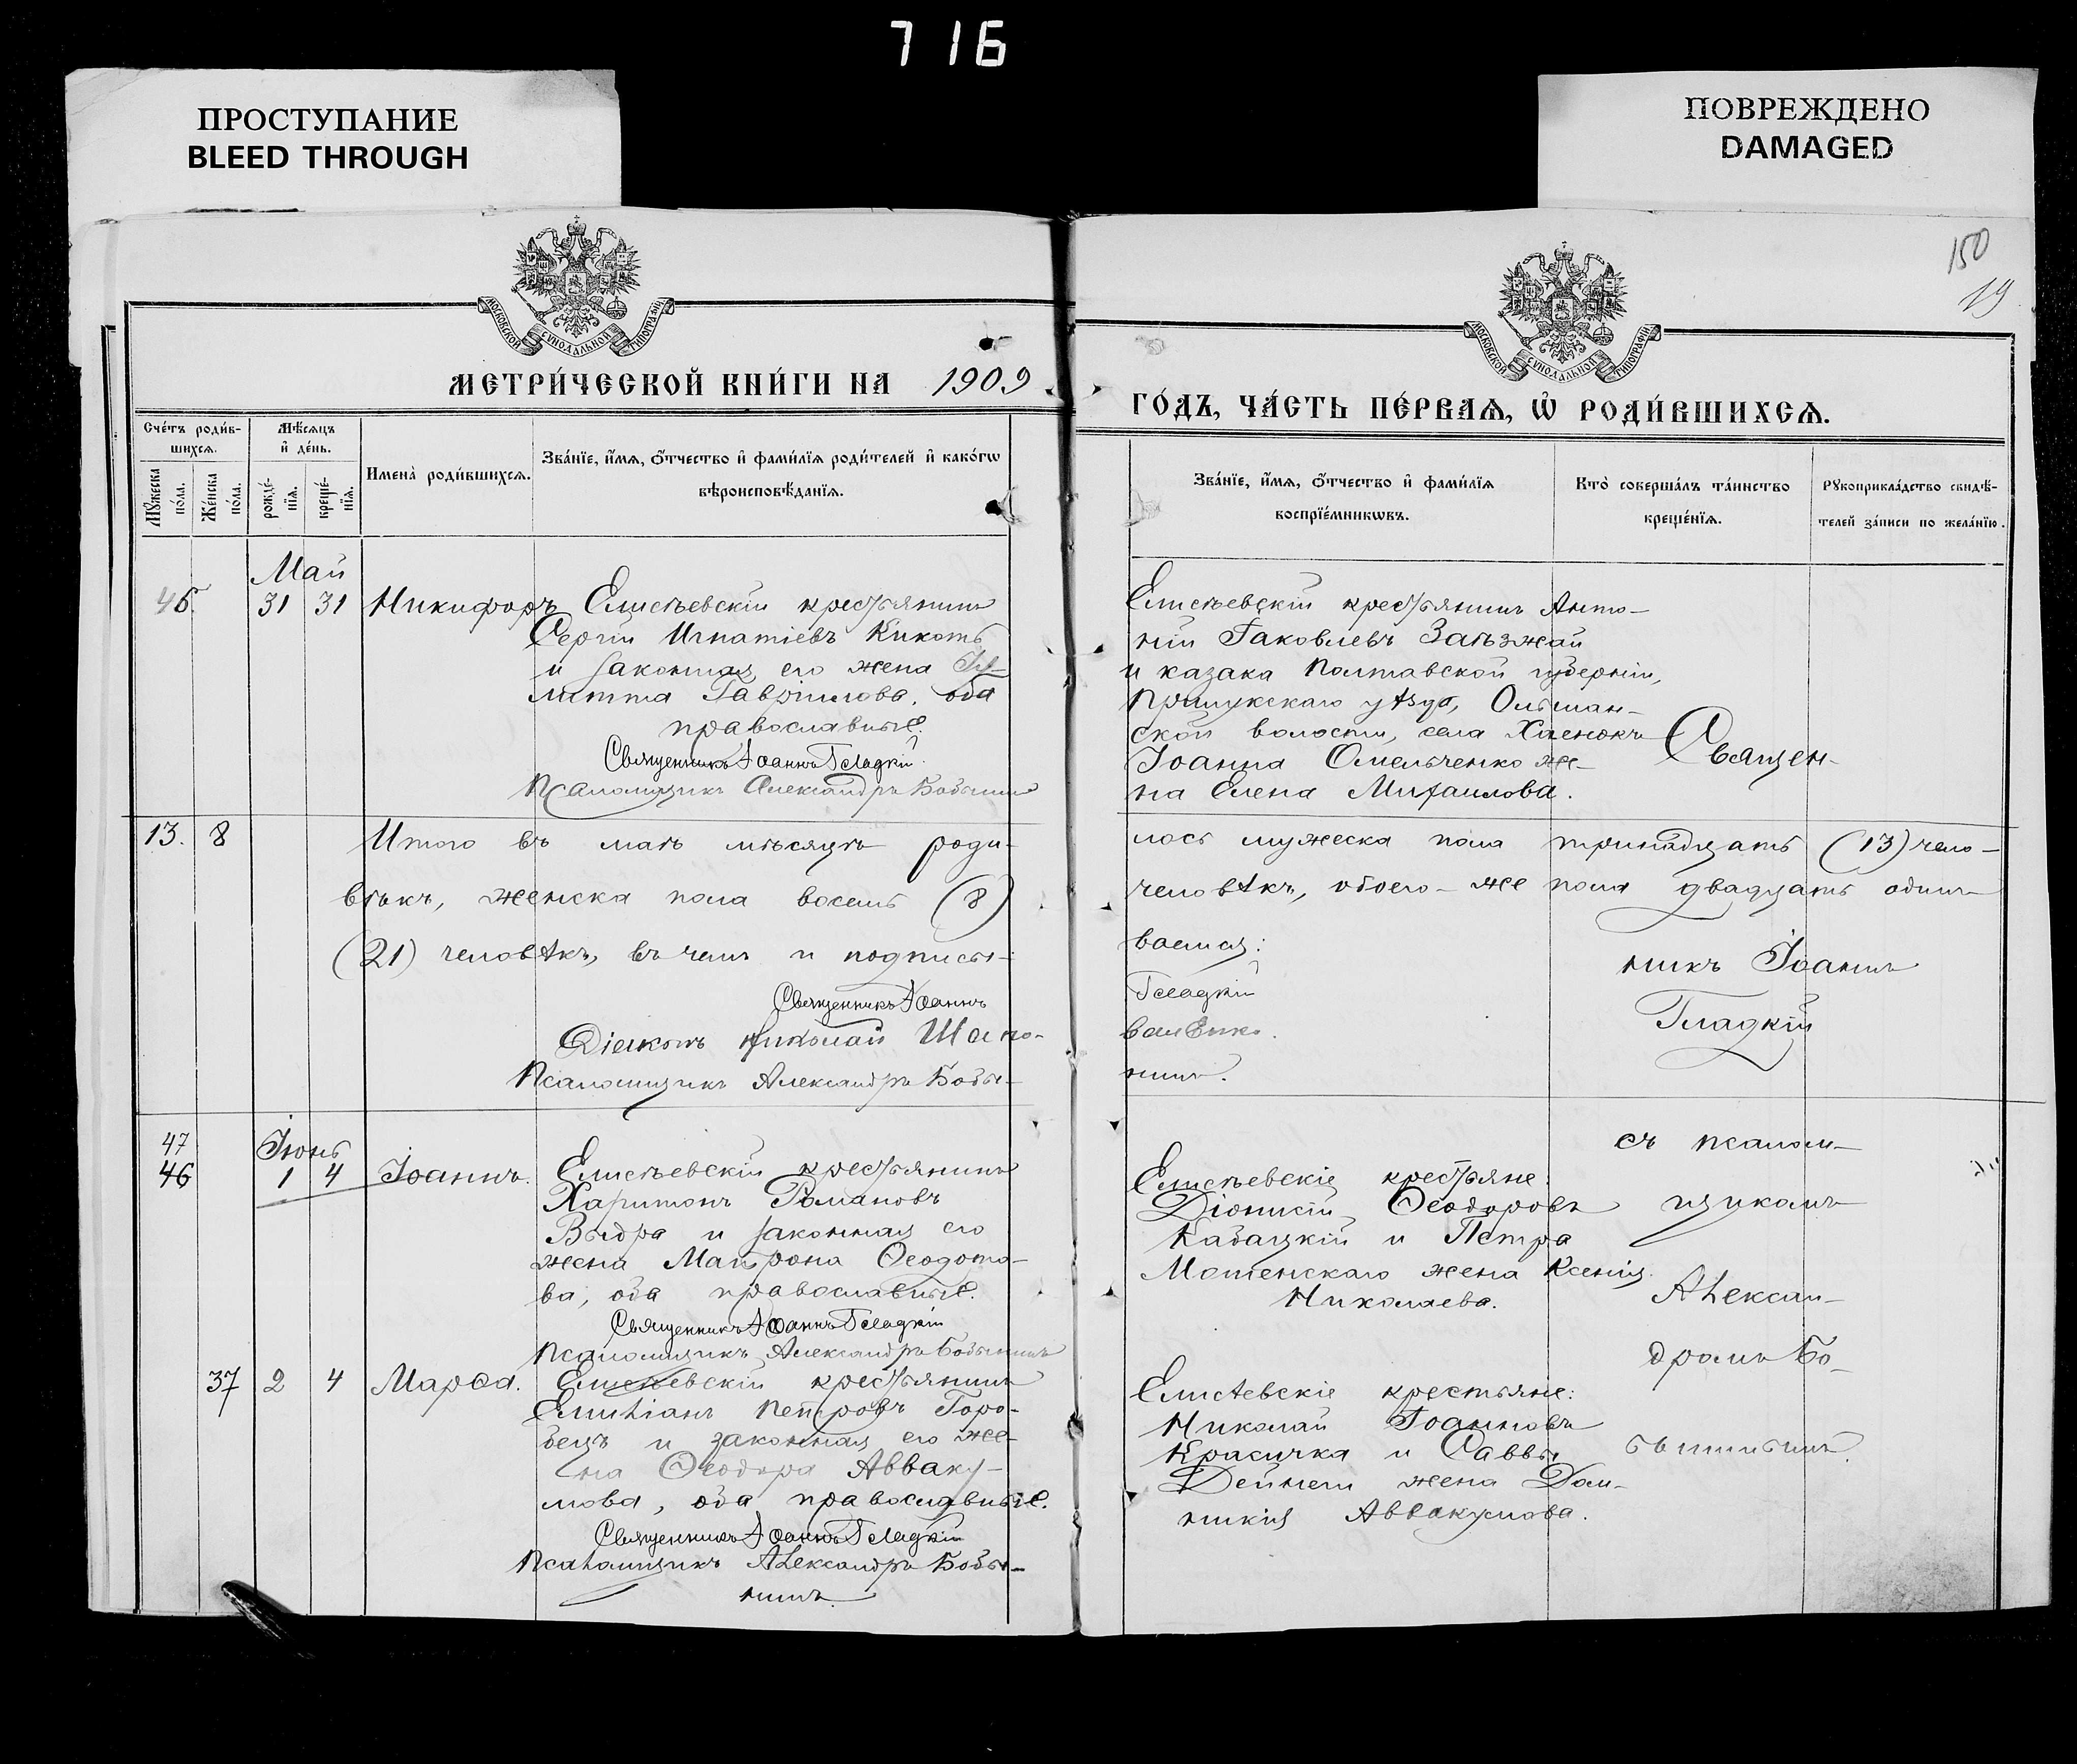 716
ПРОСТУПАНИЕ
BLEED THROUGH
ПОВРЕЖДЕНО
DAMAGED
150
19
МОСКОВСКОЙ СУНОДАЛЬНОЙ ТИПОГРАФІИ
МОСКОВСКОЙ СУНОДАЛЬНОЙ ТИПОГРАФІИ
МЕТРИ́ЧЕСКОЙ КНИ́ГИ НА 1909
ГО́ДЪ, ЧА́СТЬ ПЕ́РВАѦ, Ѡ҆ РОДИ́ВШИХСѦ.
Сче́тъ роди́в-
шихсѧ.
Мꙋ́жеска по́ла.
Же́нска по́ла.
Мѣ́сѧцъ
и҆ де́нь.
рожде́-
нїѧ.
креще́-
нїѧ.
Имена̀ роди́вшихсѧ.
Зва́нїе, и҆́мѧ, ѻ҆́тчество и҆ фами́лїѧ роди́телей и҆ како́гѡ
вѣроисповѣ́данїѧ.
Зва́нїе, и҆́мѧ, ѻ҆́тчество и҆ фами́лїѧ
воспрїе́мникѡвъ.
Кто̀ соверша́лъ та́инство
креще́нїѧ.
Рꙋкоприкла́дство свидѣ́-
телей за́писи по жела́нїю.
Май
31 31 Никифоръ Елисѣевскій крестьянинъ
Сергій Игнатіевъ Кикоть
и законная его жена Іу-
литта Гавріилова, оба
православные.
Священникъ Іоаннъ Гладкій
Псаломщикъ Александръ Бобынинъ
Елисѣевскій крестьянинъ Анто-
ній Іаковлевъ Заѣзжай
и казака Полтавской губерніи,
Прилукскаго уѣзда, Ольшан-
ской волости, села
Іоанна Омельченко же-
на Елена Михаилова.
Священ-
13. 8 Итого въ маѣ мѣсяцѣ роди-
лось мужеска пола тринадцать (13) чело-
вѣкъ, женска пола восемь (8)
человѣкъ, обоего-же пола двадцать одинъ
(21) человѣкъ, въ чемъ и подписы-
ваемся:
Священникъ Іоаннъ
Гладкій
Діаконъ Николай Шапо-
валенко.
Псаломщикъ Александръ Бобы-
нинъ.
никъ Іоаннъ
Гладкій
47
46
Іюнь
1 4 Іоаннъ. Елисѣевскій крестьянинъ
Харитонъ Романовъ
Выдра и законная его
жена Матрона Ѳеодото-
ва, оба православные.
Священникъ Іоаннъ Гладкій
Псаломщикъ Александръ Бобынинъ
Елисѣевскіе крестьяне:
Діонисій Ѳеодоровъ
Кабацкій и Петра
жена Ксенія
Николаева.
съ псалом-
щикомъ
Алексан-
дромъ Бо-
бынинымъ.
37 2 4 Марѳа. Елисѣевскій крестьянинъ
Емиліанъ Петровъ Горо-
бецъ и законная его же-
на Ѳеодора Авваку-
мова, оба православные.
Священникъ Іоаннъ Гладкій
Псаломщикъ Александръ Бобы-
нинъ.
Елисѣевскіе крестьяне:
Николай Іоанновъ
Красичка и Саввы
Дейнеги жена Дом-
никія Аввакумова.